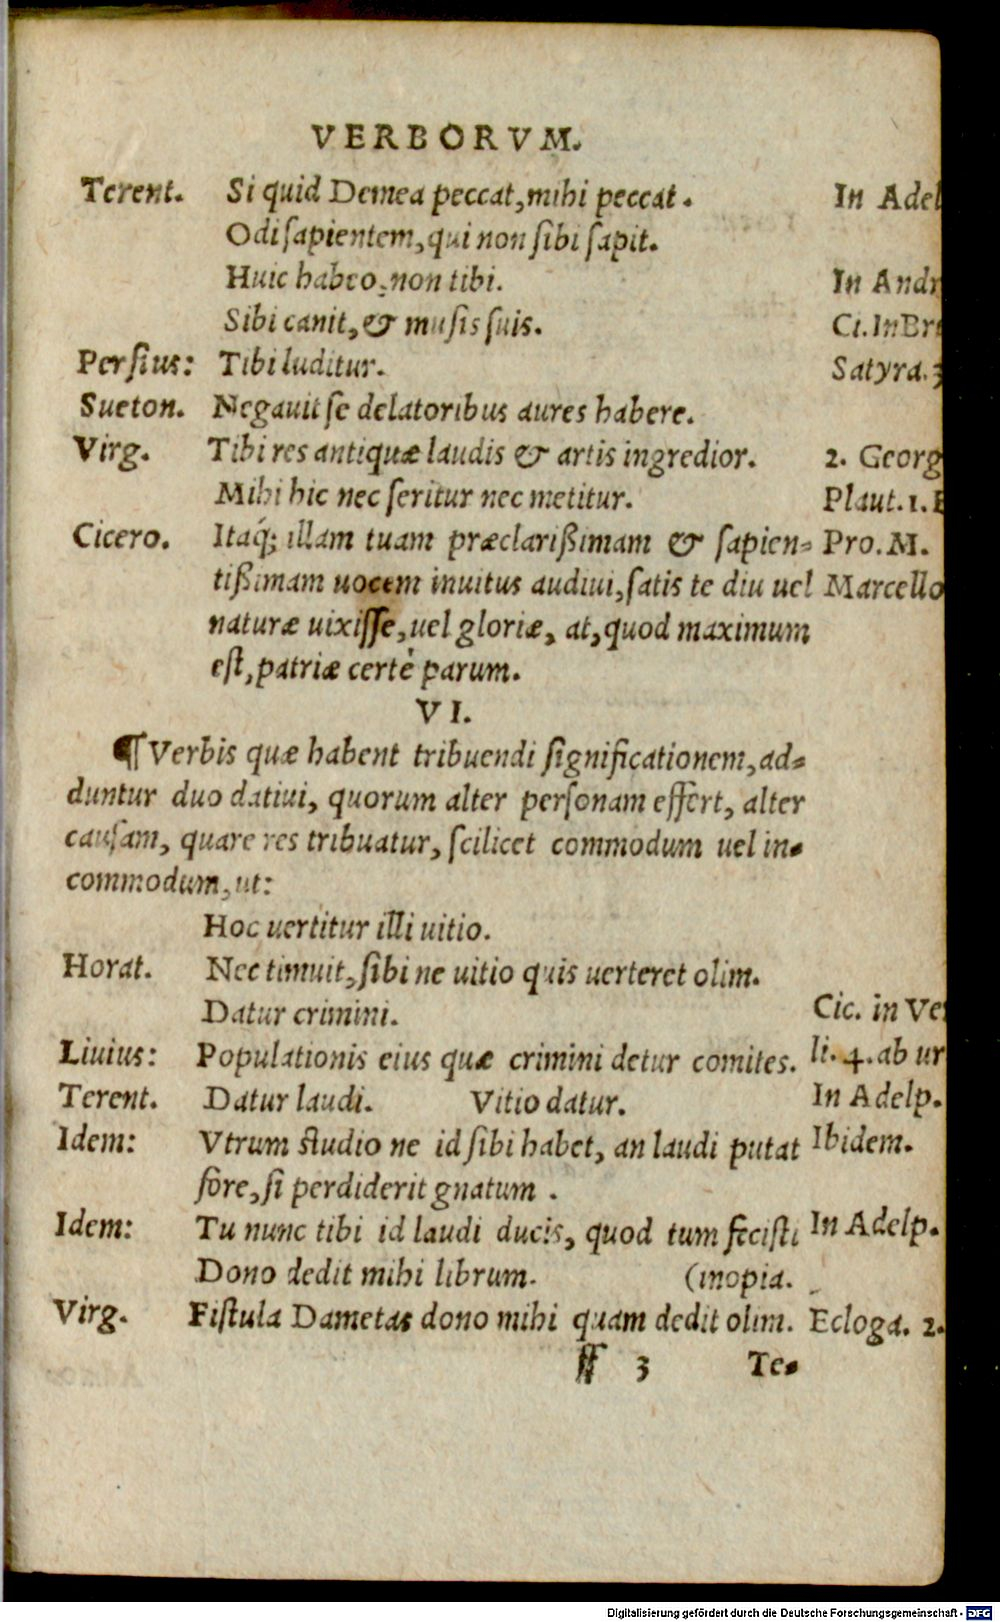 VERBORVM.
Terent. Si quid Demea peccat, mihi peccat. In Adel
Odi sapientem, qui non sibi sapit.
Huic habeo, non tibi. In Andr
Sibi canit, & musis suis. Ci. In Br
Persius: Tibi luditur. Satyra. 3
Sueton. Negauit se delatoribus aures habere.
Virg. Tibi res antiquæ laudis & artis ingredior. 2. Georg
Mihi hic nec seritur nec metitur. Plaut. 1. E
Cicero. Itaq́; illam tuam præclarißimam & sapien= Pro. M.
tißimam uocem inuitus audiui, satis te diu uel Marcello
naturæ uixisse, uel gloriæ, at, quod maximum
est, patriæ certè parum.
VI.
¶ Verbis quæ habent tribuendi significationem, ad=
duntur duo datiui, quorum alter personam effert, alter
causam, quare res tribuatur, scilicet commodum uel in=
commodum, ut:
Hoc uertitur illi uitio.
Horat. Nec timuit, sibi ne uitio quis uerteret olim.
Datur crimini. Cic. in Ve
Liuius: Populationis eius quæ crimini detur comites. li. 4. ab ur
Terent. Datur laudi. Vitio datur. In Adelp.
Idem: Vtrum studio ne id sibi habet, an laudi putat Ibidem.
fore, si perdiderit gnatum .
Idem: Tu nunc tibi id laudi ducis, quod tum fecisti In Adelp.
Dono dedit mihi librum. (inopia.
Virg. Fistula Dametas dono mihi quam dedit olim. Ecloga. 2.
ff 3 Te=
Digitalisierung gefördert durch die Deutsche Forschungsgemeinschaft - DFG